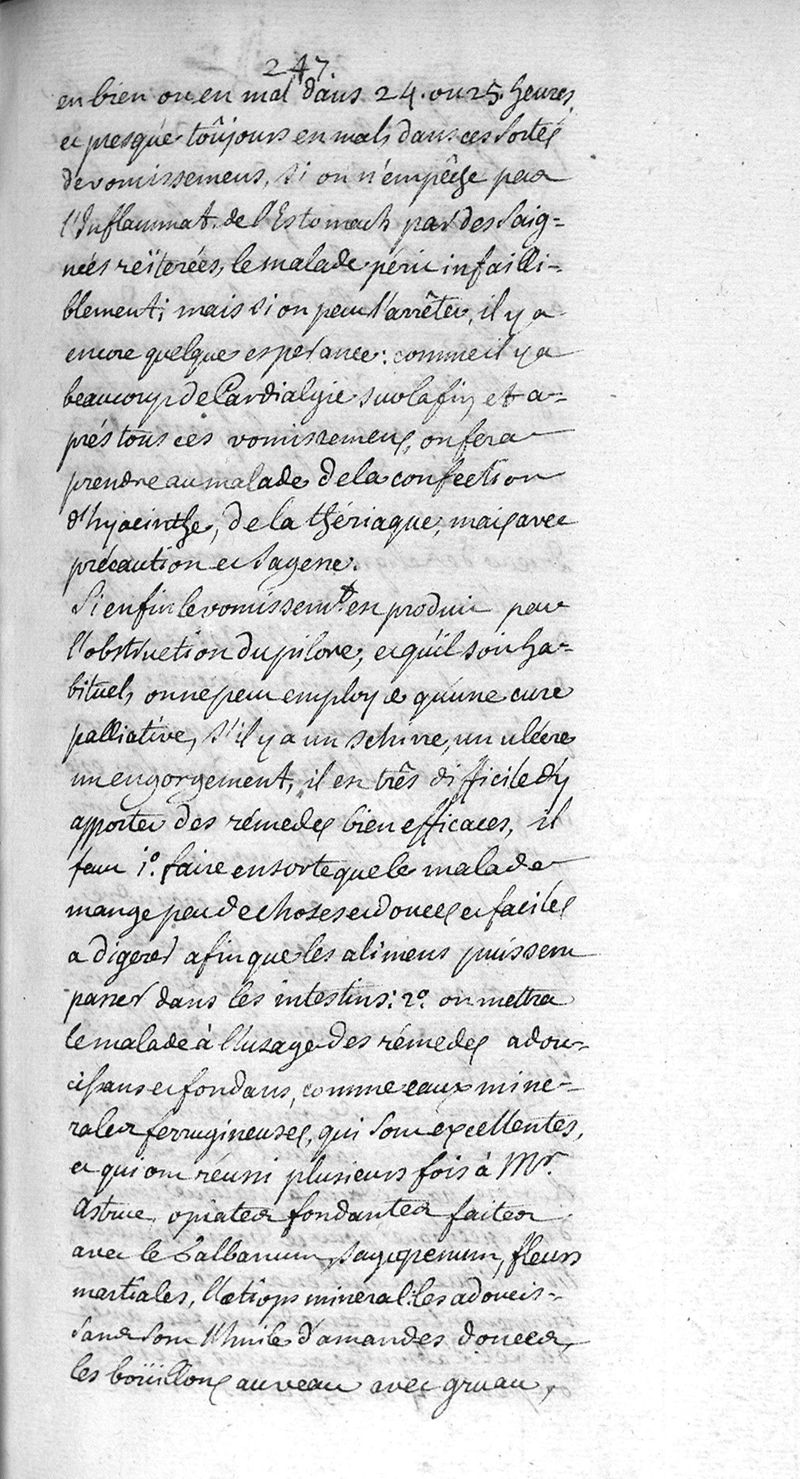 247
en bien ou en mal dans 24. ou 25. heures,
et presque toûjours en mal, dans ces sortes
de vomissemens, si on n'empêche pas
l'Inflammat. de l'Estomach par des saig-
nées reïterées, le malade périt infailli-
blement; mais si on peut l'arrêter, il y a
encore quelque esperance: comme il y a
beaucoup de Cardialgie sur la fin, et a-
prés tous ces vomissemens, on fera
prendre au malade de la confection
d'hyacinthe, de la thériaque, mais avec
précaution et sagesse.
Si enfin le vomissem.t est produit par
l'obstruction du pilore, et qu'il soit ha-
bituel, on ne peut employer qu'une cure
palliative, s'il y a un schirre, un ulcére
un engorgement, il est três difficile d'y
apporter des rémedes bien efficaces, il
faut 1.º faire en sorte que le malade
mange peu de choses et douces et faciles
a digerer afin que les alimens puissent
passer dans les intestins: 2.º on mettra
le malade à l'usage des rémedes adou-
cissans et fondans, comme eaux miné-
rales ferrugineuses, qui sont excellentes,
et qui ont réussi plusieurs fois à Mr.
Astruc, opiates fondantes faites
avec le Galbanum, sagapenum, fleurs
martiales, l'Ætiops mineral: les adoucis-
sans sont l'huile d'amandes douces,
les boüillons au veau avec gruau,